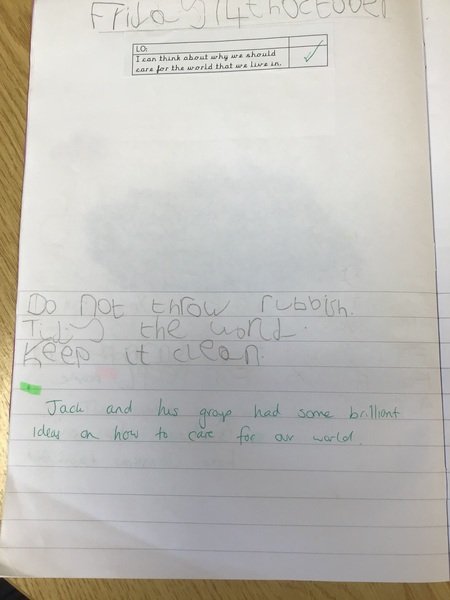 Friday 14thOctober
LO:
I can think about why we should
care for the world that we live in.
Do not throw rubbish.
Tidy the world.
Keep it clean.
Jack and his group had some brilliant
ideas on how to care for our world.